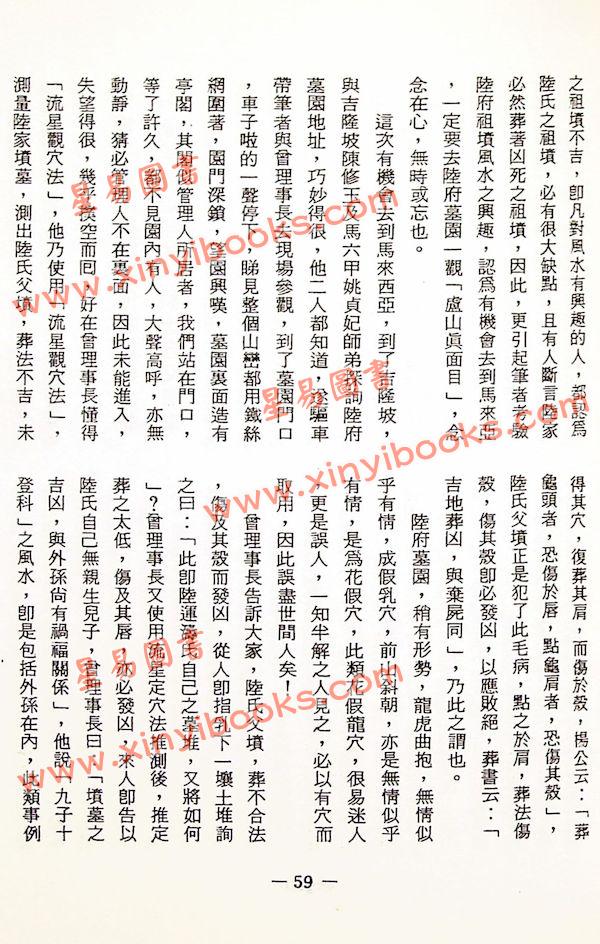 之祖墳不吉，卽凡對風水有興趣的人，都認爲
陸氏之祖墳，必有很大缺點，且有人斷言陸家
必然葬著凶死之祖墳，因此，更引起筆者考驗
陸府祖墳風水之興趣，認爲有機會去到馬來亞
，一定要去陸府墓園一觀「盧山眞面目」，念
念在心，無時或忘也。
這次有機會去到馬來西亞，到了吉隆坡，
與吉隆坡陳修王及馬六甲姚貞妃師弟探詢陸府
墓園地址，巧妙得很，他二人都知道，遂驅車
帶筆者與曾理事長去現場參觀，到了墓園門口
，車子啦的一聲停下，睇見整個山巒都用鐵絲
網圍著，園門深鎖，望園興嘆，墓園裏面造有
亭閣，其閣似管理人所居者，我們站在門口，
等了許久，都不見園內有人，大聲高呼，亦無
動靜，猜必管理人不在裏面，因此未能進入，
失望得很，幾乎撲空而囘，好在曾理事長懂得
「流星觀穴法」，他乃使用「流星觀穴法」，
測量陸家墳墓，測出陸氏父墳，葬法不吉，未
得其穴，復葬其肩，而傷於殼，楊公云：「葬
龜頭者，恐傷於唇，點龜肩者，恐傷其殼」，
陸氏父墳正是犯了此毛病，點之於肩，葬法傷
殼，傷其殼卽必發凶，以應敗絕，葬書云：「
吉地葬凶，與棄屍同」，乃此之謂也。
陸府墓園，稍有形勢，龍虎曲抱，無情似
乎有情，成假乳穴，前山斜朝，亦是無情似乎
有情，是爲花假穴，此類花假龍穴，很易迷人
，更是誤人，一知半解之人見之，必以有穴而
取用，因此誤盡世間人矣！
曾理事長告訴大家，陸氏父墳，葬不合法
，傷及其殼而發凶，從人卽指乳下一壤土堆詢
之曰：「此卽陸運濤氏自己之墓堆，又將如何
」？曾理事長又使用流星定穴法推測後，推定
葬之太低，傷及其唇，亦必發凶，來人卽告以
陸氏自己無親生兒子，曾理事長曰：「墳墓之
吉凶，與外孫尙有禍福關係」，他說「九子十
登科」之風水，卽是包括外孫在內，此類事例
— 59 —
星易圖書
www.xinyibooks.com
星易圖書
www.xinyibooks.com
星易圖書
www.xinyibooks.com